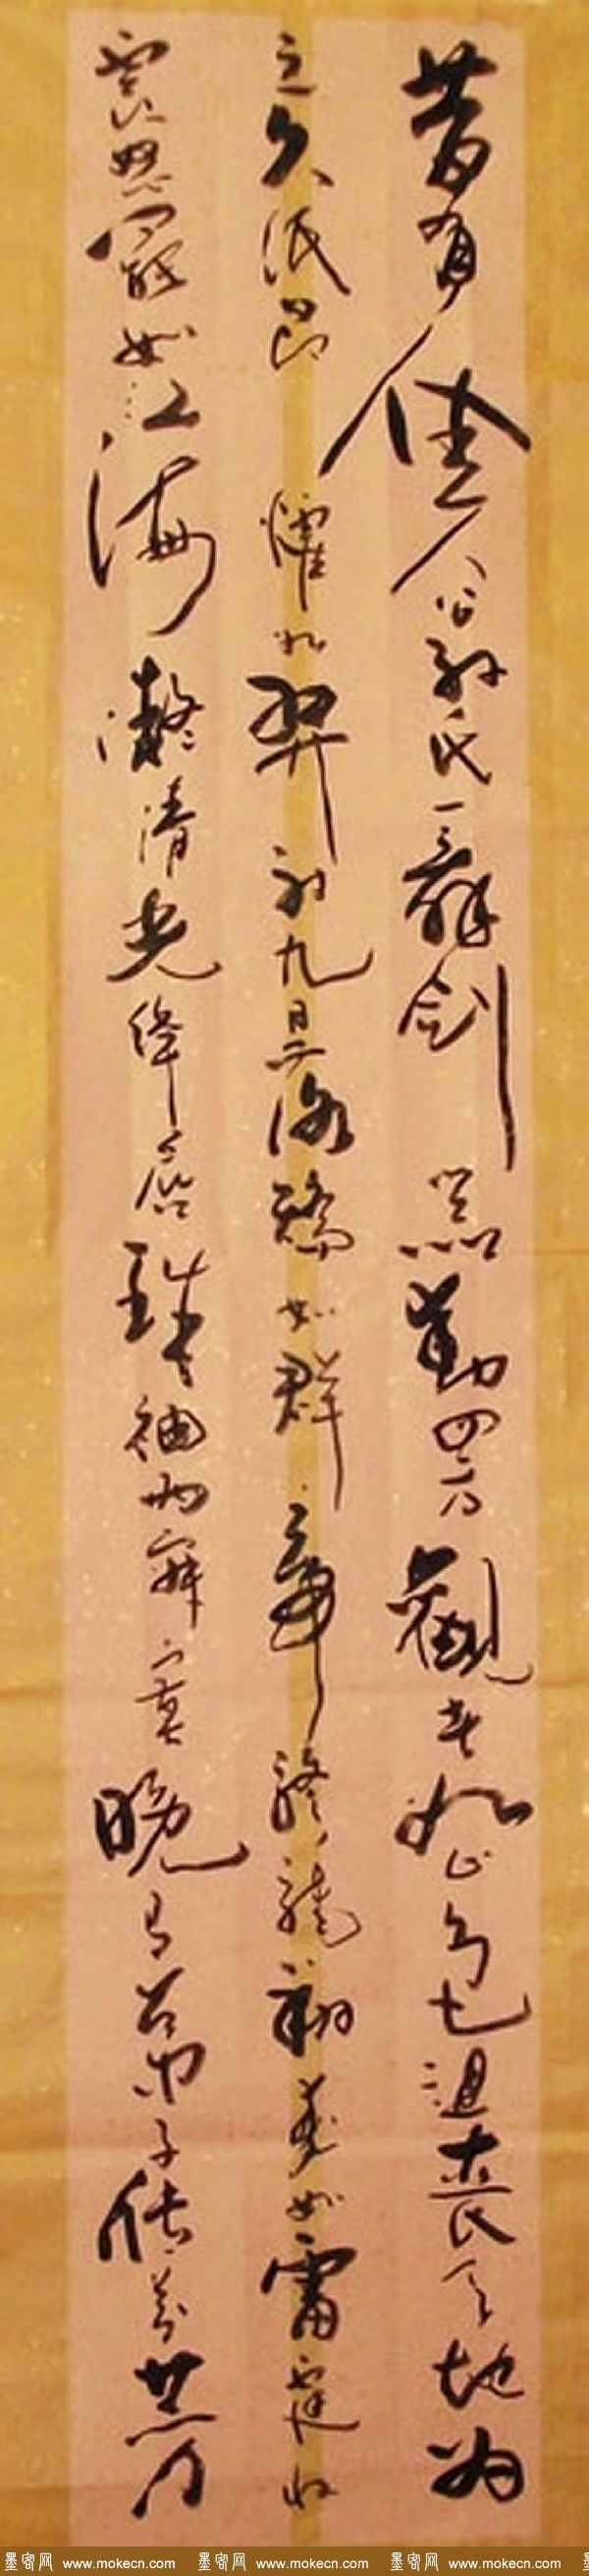 昔有佳人公孫氏一舞劍器動四方觀者如山色沮喪天地為
之久低昂㸌如羿射九日落矯如群帝驂龍翔來如雷霆收
震怒罷如江海凝清光絳唇珠袖兩寂寞晚有弟子傳芬芳
墨客网 www.mokecn.com 墨客网 www.mokecn.com 墨客网 www.mokecn.com